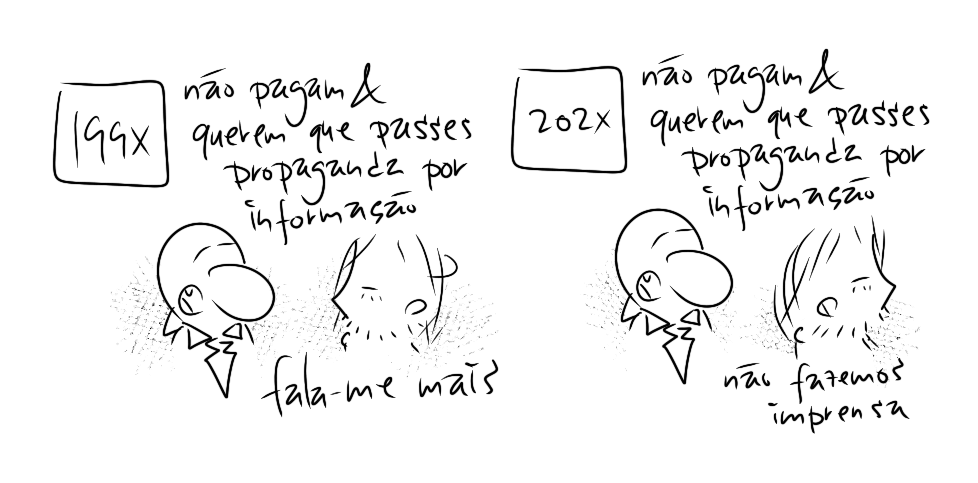 199x
não pagam &
querem que passes
propaganda por
informação
fala-me mais
202x
não pagam &
querem que passes
propaganda por
informação
não fazemos
imprensa